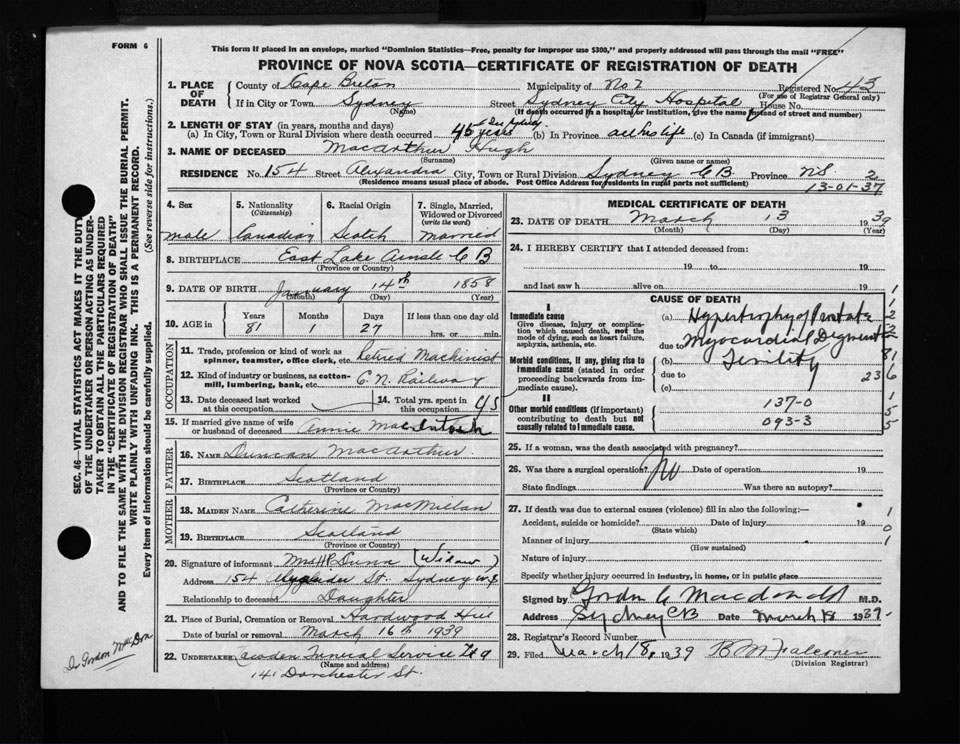 FORM 6
This form if placed in an envelope, marked "Dominion Statistics—Free, penalty for improper use $300," and properly addressed will pass through the mail "FREE"
PROVINCE OF NOVA SCOTIA—CERTIFICATE OF REGISTRATION OF DEATH
1. PLACE OF DEATH County of Cape Breton Municipality of No 2 Registered No. 113
(For use of Registrar General only)
If in City or Town Sydney Street Sydney City Hospital House No.
(Name) (If death occurred in a hospital or institution, give the name instead of street and number)
2. LENGTH OF STAY (in years, months and days)
(a) In City, Town or Rural Division where death occurred 45 years (b) In Province all his life (c) In Canada (if immigrant)
3. NAME OF DECEASED MacArthur Hugh
(Surname) (Given name or names)
RESIDENCE No. 154 Street Alexandra City, Town or Rural Division Sydney C B Province N S 2
(Residence means usual place of abode. Post Office Address for residents in rural parts not sufficient)
13-01-37
4. Sex 5. Nationality (Citizenship) 6. Racial Origin 7. Single, Married, Widowed or Divorced (write the word)
male Canadian Scotch Married
8. BIRTHPLACE East Lake Ainslie C B
(Province or Country)
9. DATE OF BIRTH January 14th 1858
(Month) (Day) (Year)
10. AGE in Years Months Days If less than one day old
81 1 27 hrs. or min.
OCCUPATION
11. Trade, profession or kind of work as spinner, teamster, office clerk, etc. retired Machinist
12. Kind of industry or business, as cotton-mill, lumbering, bank, etc. C. N. Railway
13. Date deceased last worked at this occupation 14. Total yrs. spent in this occupation 45
15. If married give name of wife or husband of deceased Annie MacIntosh
FATHER
16. NAME Duncan MacArthur
17. BIRTHPLACE Scotland
(Province or Country)
MOTHER
18. MAIDEN NAME Catherine MacMillan
19. BIRTHPLACE Scotland
(Province or Country)
20. Signature of informant Mrs H P Dunn (Widow)
Address 154 Alexander St. Sydney N.S
Relationship to deceased Daughter
21. Place of Burial, Cremation or Removal Hardwood Hill
Date of burial or removal March 16th 1939
22. UNDERTAKER Funeral Service
(Name and address)
141 Dorchester St.
MEDICAL CERTIFICATE OF DEATH
23. DATE OF DEATH March 13 1939
(Month) (Day) (Year)
24. I HEREBY CERTIFY that I attended deceased from:
19 to 19
and last saw h alive on 19
CAUSE OF DEATH
I
Immediate cause
Give disease, injury or complication which caused death, not the mode of dying, such as heart failure, asphyxia, asthenia, etc.
(a) Hypertrophy of Prostate
due to Myocardial
Morbid conditions, if any, giving rise to immediate cause (stated in order proceeding backwards from immediate cause).
(b) Senility
due to 236
(c)
II
Other morbid conditions (if important) contributing to death but not causally related to immediate cause.
137-0
093-3
25. If a woman, was the death associated with pregnancy?
26. Was there a surgical operation? No Date of operation 19
State findings Was there an autopsy?
27. If death was due to external causes (violence) fill in also the following:—
Accident, suicide or homicide? Date of injury 19
(State which)
Manner of injury
(How sustained)
Nature of injury
Specify whether injury occurred in industry, in home, or in public place
Signed by Gordon C Macdonald M.D.
Address Sydney CB Date March 18 1939
28. Registrar's Record Number
29. Filed March 18, 1939 B M Falconer
(Division Registrar)
SEC. 46—VITAL STATISTICS ACT MAKES IT THE DUTY OF THE UNDERTAKER OR PERSON ACTING AS UNDERTAKER TO OBTAIN ALL THE PARTICULARS REQUIRED IN THE "CERTIFICATE OF REGISTRATION OF DEATH" AND TO FILE THE SAME WITH THE DIVISION REGISTRAR WHO SHALL ISSUE THE BURIAL PERMIT.
WRITE PLAINLY WITH UNFADING INK. THIS IS A PERMANENT RECORD.
Every item of information should be carefully supplied. (See reverse side for instructions.)
Dr Gordon